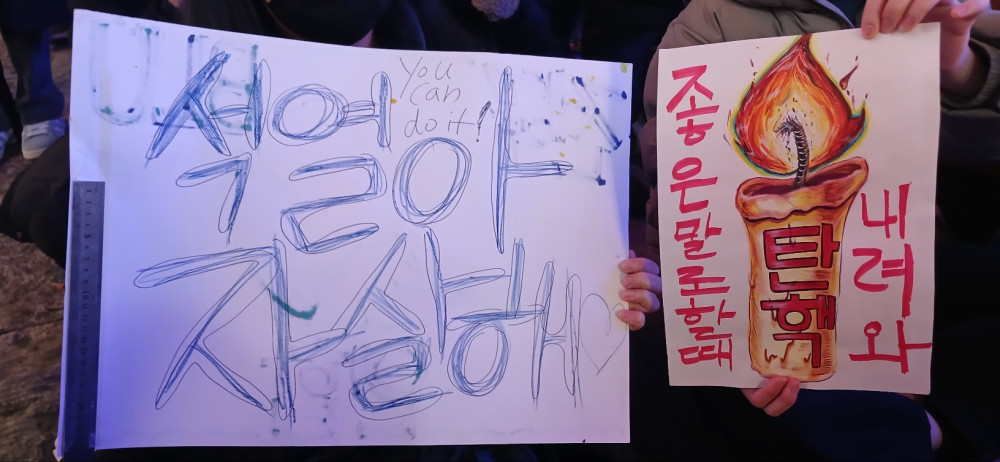 석열아
You
can
do it!
자살해♡
좋은말로할때
탄핵
내려와